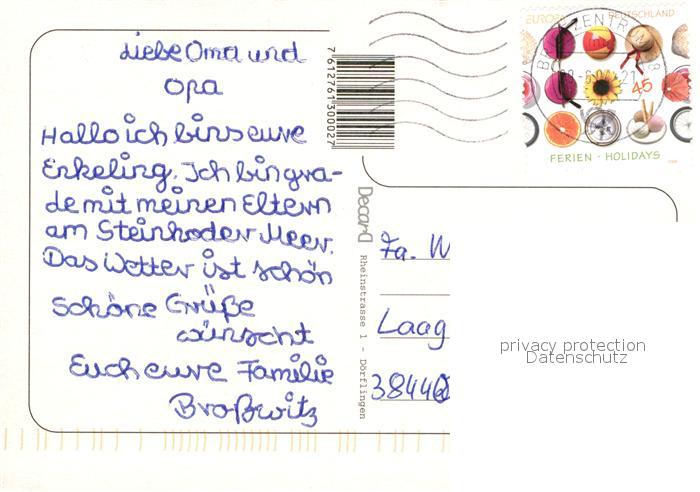 Liebe Oma und
Opa
Hallo ich bins eure
Enkeling. Ich bin gra-
de mit meinen Eltern
am Steinhoder Meer.
Das Wetter ist schön
Schöne Grüße
wünscht
Euch eure Familie
Broßwitz
7612761300027
Decard
Rheinstrasse 1 - Dörflingen
EUROPA DEUTSCHLAND
BRIEFZENTRUM
45
FERIEN · HOLIDAYS
Fa. W
Laag
38446
privacy protection
Datenschutz